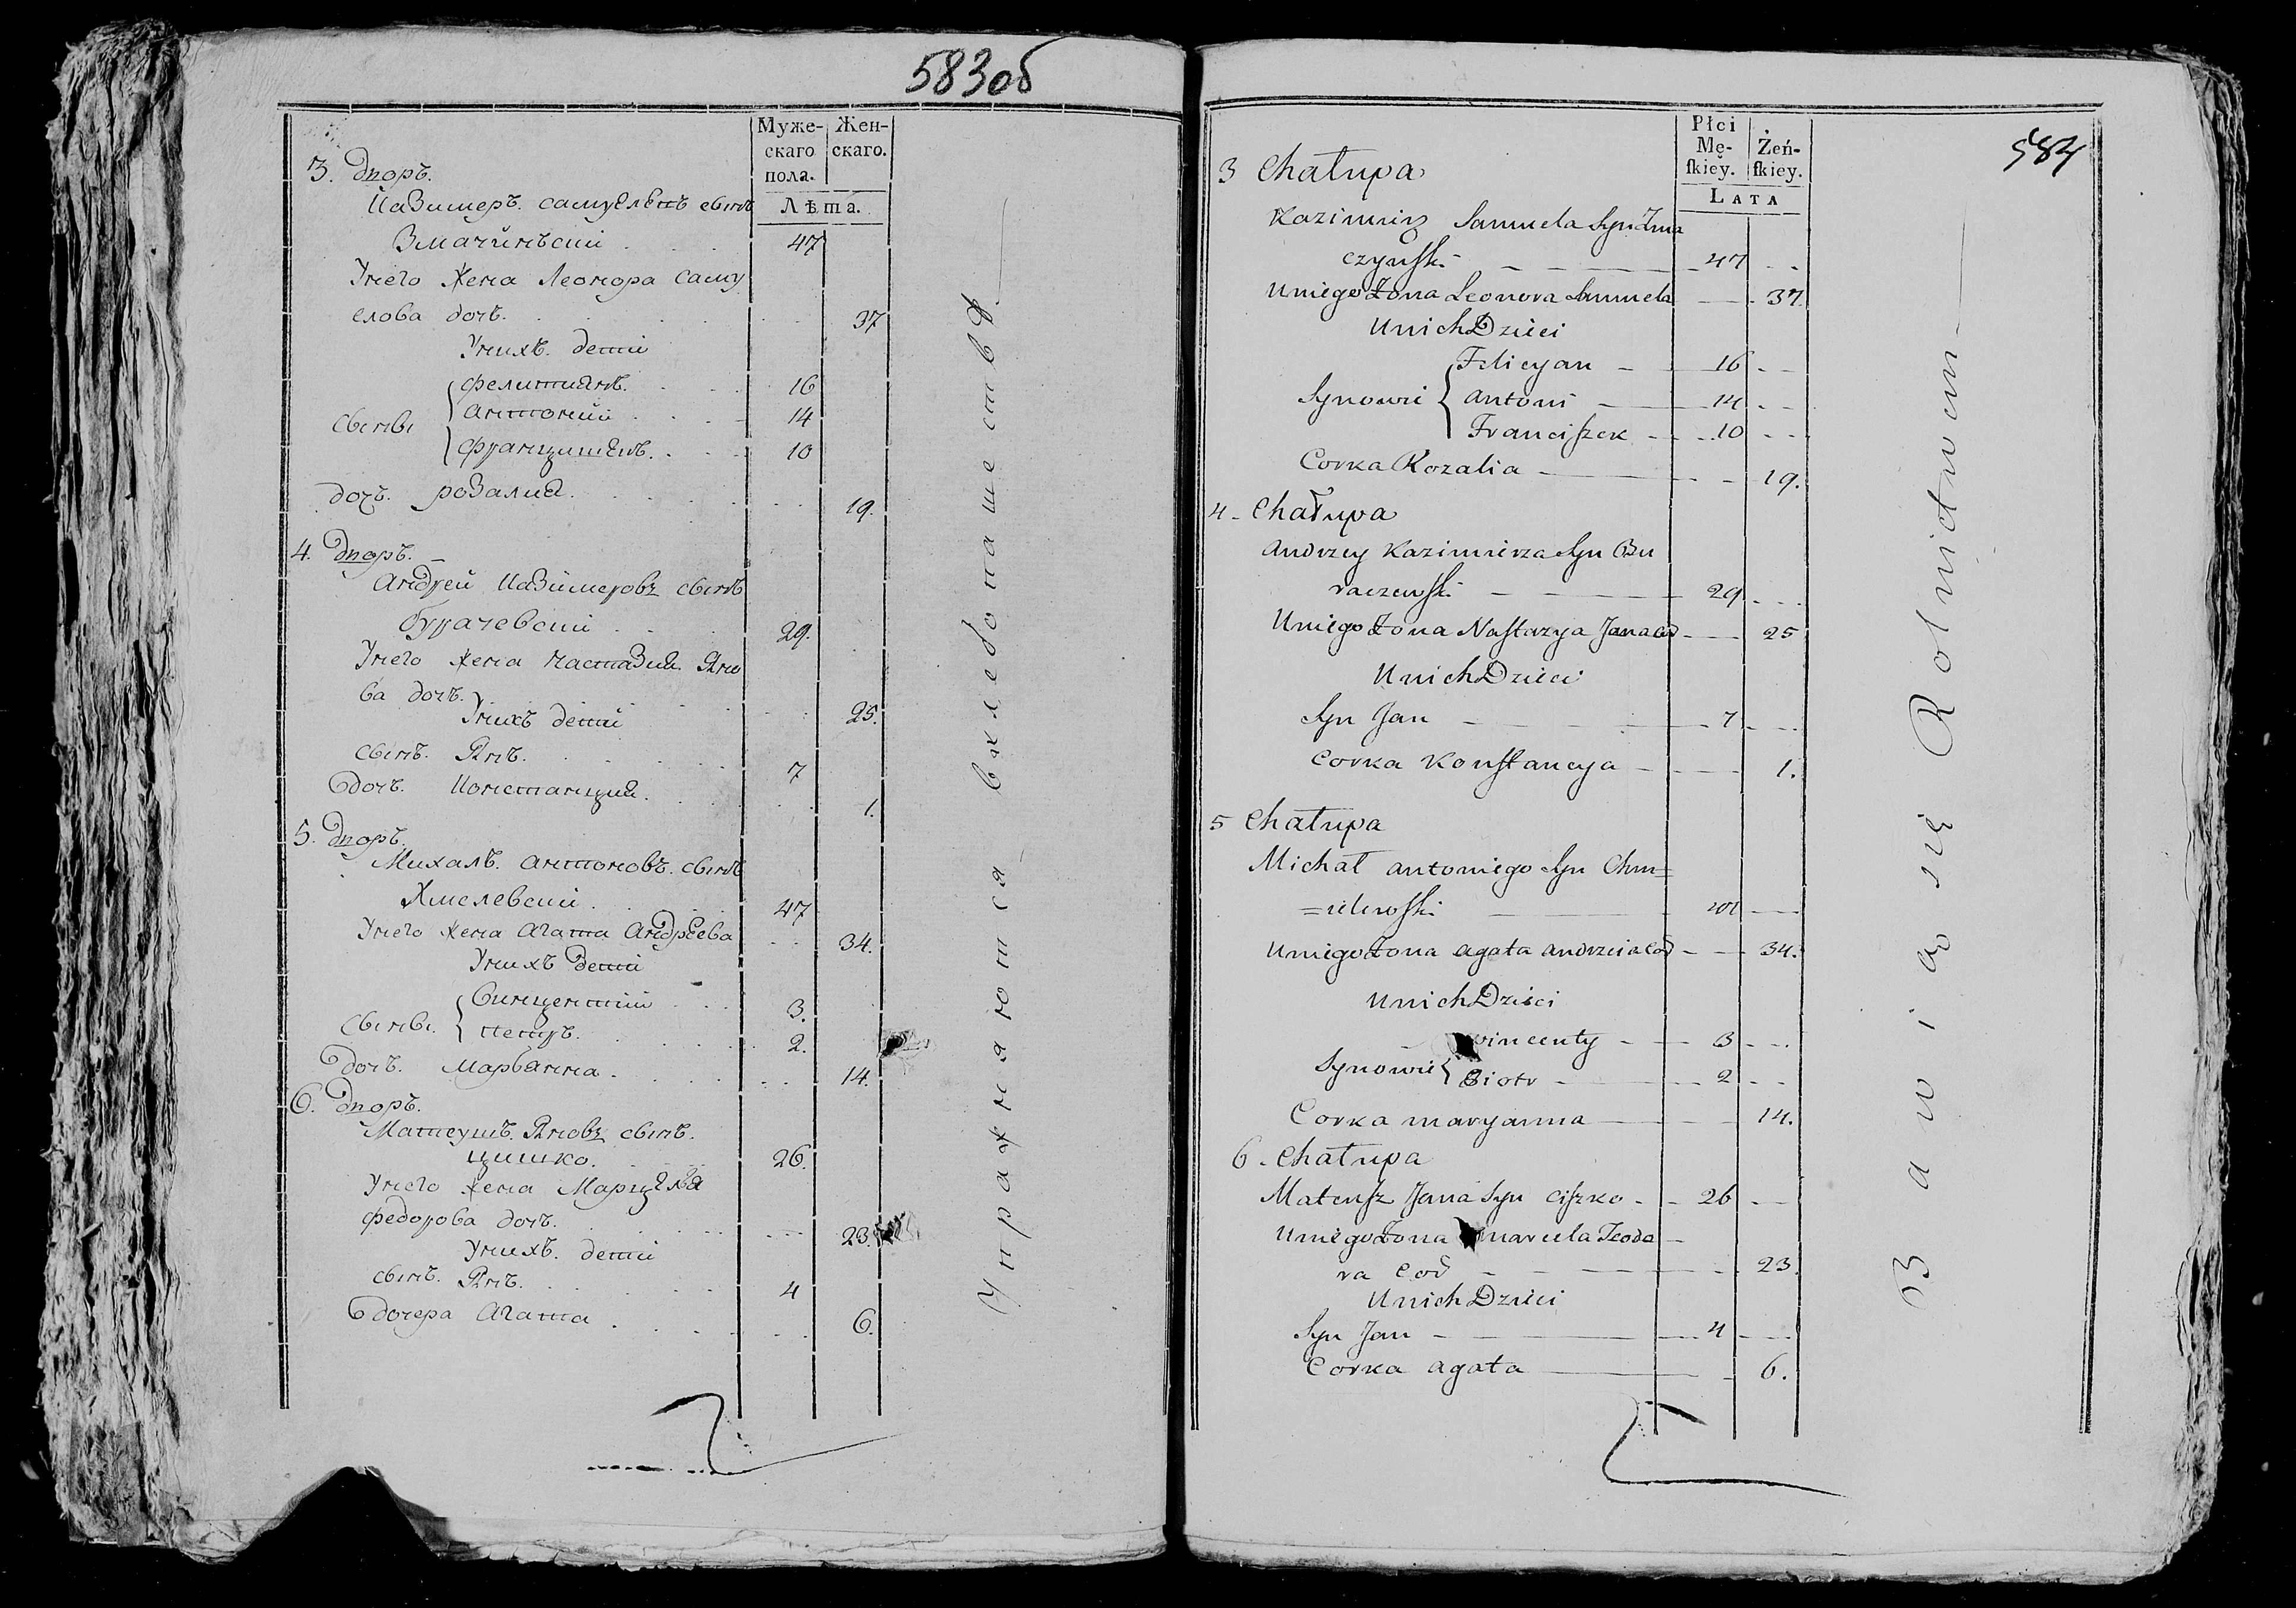 583об
Муже-
скаго
пола.
Жен-
скаго.
Лѣта.
3. Дворъ.
Казимеръ. Самуелевъ сынъ
Змачинъский 47
У него жена Леонора Саму
елова дочь. 37
У нихъ. дети
Фелитиянъ. 16
сыны Антоний 14
Францишекъ. 10
дочъ. розалия. 19.
4. Дворъ.
Андрей Казимеровъ сынъ
Бурачевский 29.
У него жена Настазия Яно
ва дочъ. 25.
У нихъ дети
сынъ. Янъ. 7
дочъ. Констанция. 1.
5. Дворъ.
Михалъ. Антоновъ. сынъ
Хмелевский. 47
У него жена Агата Андреева 34.
У нихъ дети
Винцентий 3.
сыны. Петръ. 2.
дочъ. Марьянна. 14.
6. Дворъ.
Матеушъ. Яновъ сынъ.
Цишко. 26.
У него жена Марцеля
Федорова дочъ. 23.
У нихъ. дети
сынъ. Янъ. 4
дочера Агата 6.
Упражняются в хлебопашестве.
584
Płci
Mę-
ſkiey.
Żeń-
ſkiey.
LATA
3 Chałupa
Kazimierz Samuela Syn Zma
czyński 47
U niego Żona Leonora Samuela 37
U nich Dzieci
Felicyan 16
Synowie Antoni 14
Franciszek 10
Corka Rozalia 19.
4 Chałupa
Andrzey Kazimierza Syn Bu
raczewski 29
U niego Żona Nastazya Jana Cor 25
U nich Dzieci
Syn Jan 7
Corka Konstancya 1.
5 Chałupa
Michał Antoniego Syn Chm=
=ielewski
U niego Żona Agata Andrzeia Cor 34.
U nich Dzieci
Wincenty 3
Synowie Piotr 2
Corka Maryanna 14.
6 Chałupa
Mateusz Jana Syn Ciszko 26
U niego Żona Marcela Teodo
ra Cor 23.
U nich Dzieci
Syn Jan 4
Corka Agata 6.
Bawią się Rolnictwem